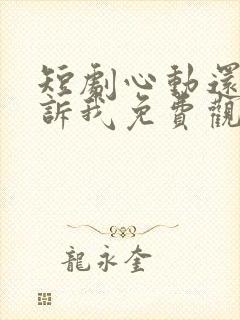 短劇心動還
訴我免費觀
龍永奎